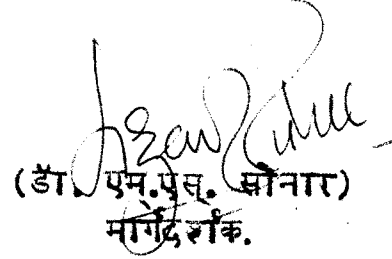 (डॉ. एम.एस्. सोनार)
मार्गदर्शक.